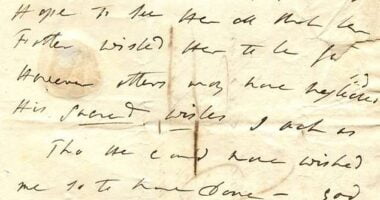 Hope to see her all that her
Father wished her to be God
However others may have neglected
His sacred wishes I act as
Tho He could have wished
me so to have done — God